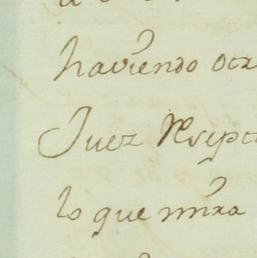 haviendo otr
Juez Recept
lo que mira